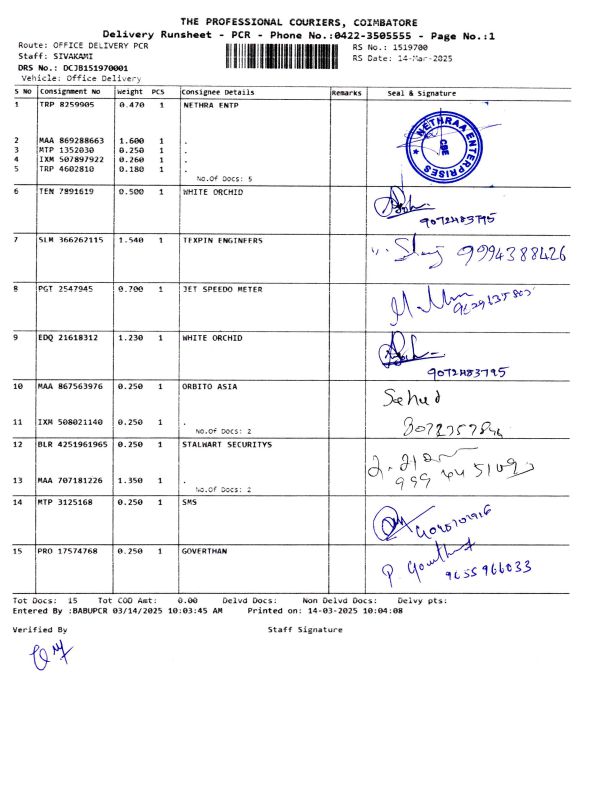 THE PROFESSIONAL COURIERS, COIMBATORE
Delivery Runsheet - PCR - Phone No.:0422-3505555 - Page No.:1
Route: OFFICE DELIVERY PCR RS No.: 1519700
Staff: SIVAKAMI RS Date: 14-Mar-2025
DRS No.: DCJB151970001
Vehicle: Office Delivery
S NO Consignment No Weight PCS Consignee Details Remarks Seal & Signature
1 TRP 8259905 0.470 1 NETHRA ENTP
NETHRAA ENTERPRISES
CBE
2 MAA 869288663 1.600 1 .
3 MTP 1352030 0.250 1 .
4 IXM 507897922 0.260 1 .
5 TRP 4602810 0.180 1 .
No.Of Docs: 5
6 TEN 7891619 0.500 1 WHITE ORCHID
9072483795
7 SLM 366262115 1.540 1 TEXPIN ENGINEERS
9994388426
8 PGT 2547945 0.700 1 JET SPEEDO METER
9 EDQ 21618312 1.230 1 WHITE ORCHID
9072483795
10 MAA 867563976 0.250 1 ORBITO ASIA
11 IXM 508021140 0.250 1 .
No.Of Docs: 2
12 BLR 4251961965 0.250 1 STALWART SECURITYS
13 MAA 707181226 1.350 1 .
No.Of Docs: 2
14 MTP 3125168 0.250 1 SMS
15 PRO 17574768 0.250 1 GOVERTHAN
9655966033
Tot Docs: 15 Tot COD Amt: 0.00 Delvd Docs: Non Delvd Docs: Delvy pts:
Entered By :BABUPCR 03/14/2025 10:03:45 AM Printed on: 14-03-2025 10:04:08
Verified By Staff Signature